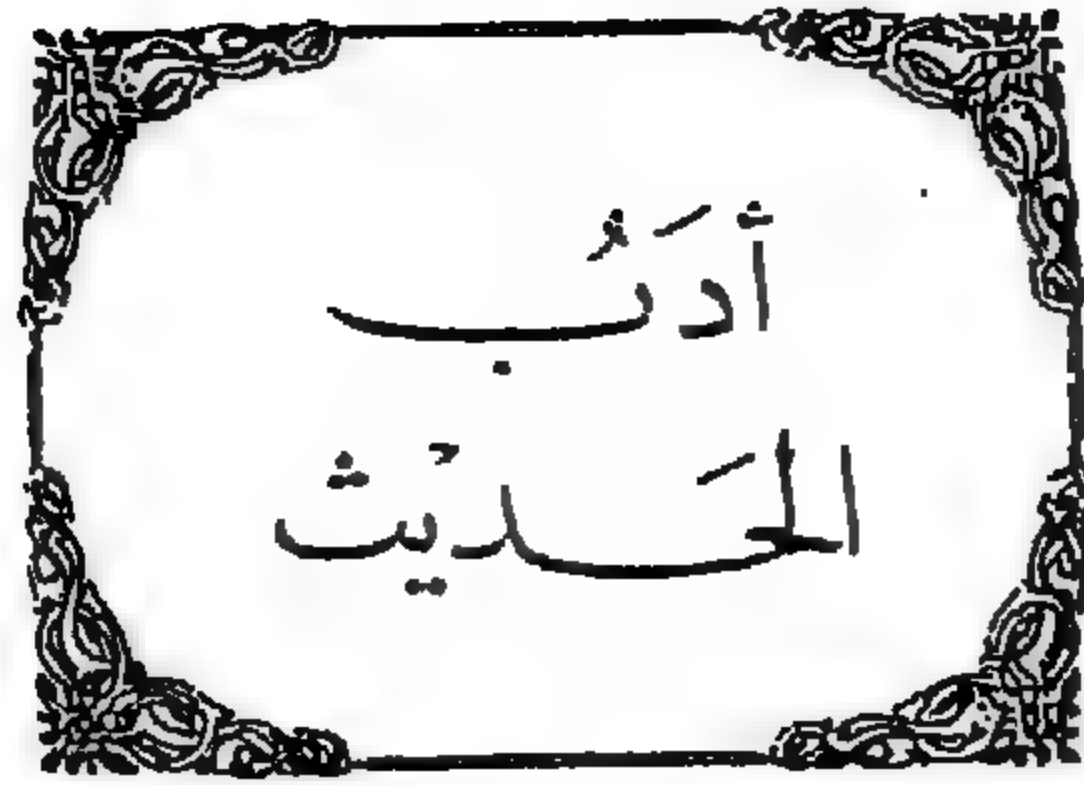 أدَبُ
الحَديْث